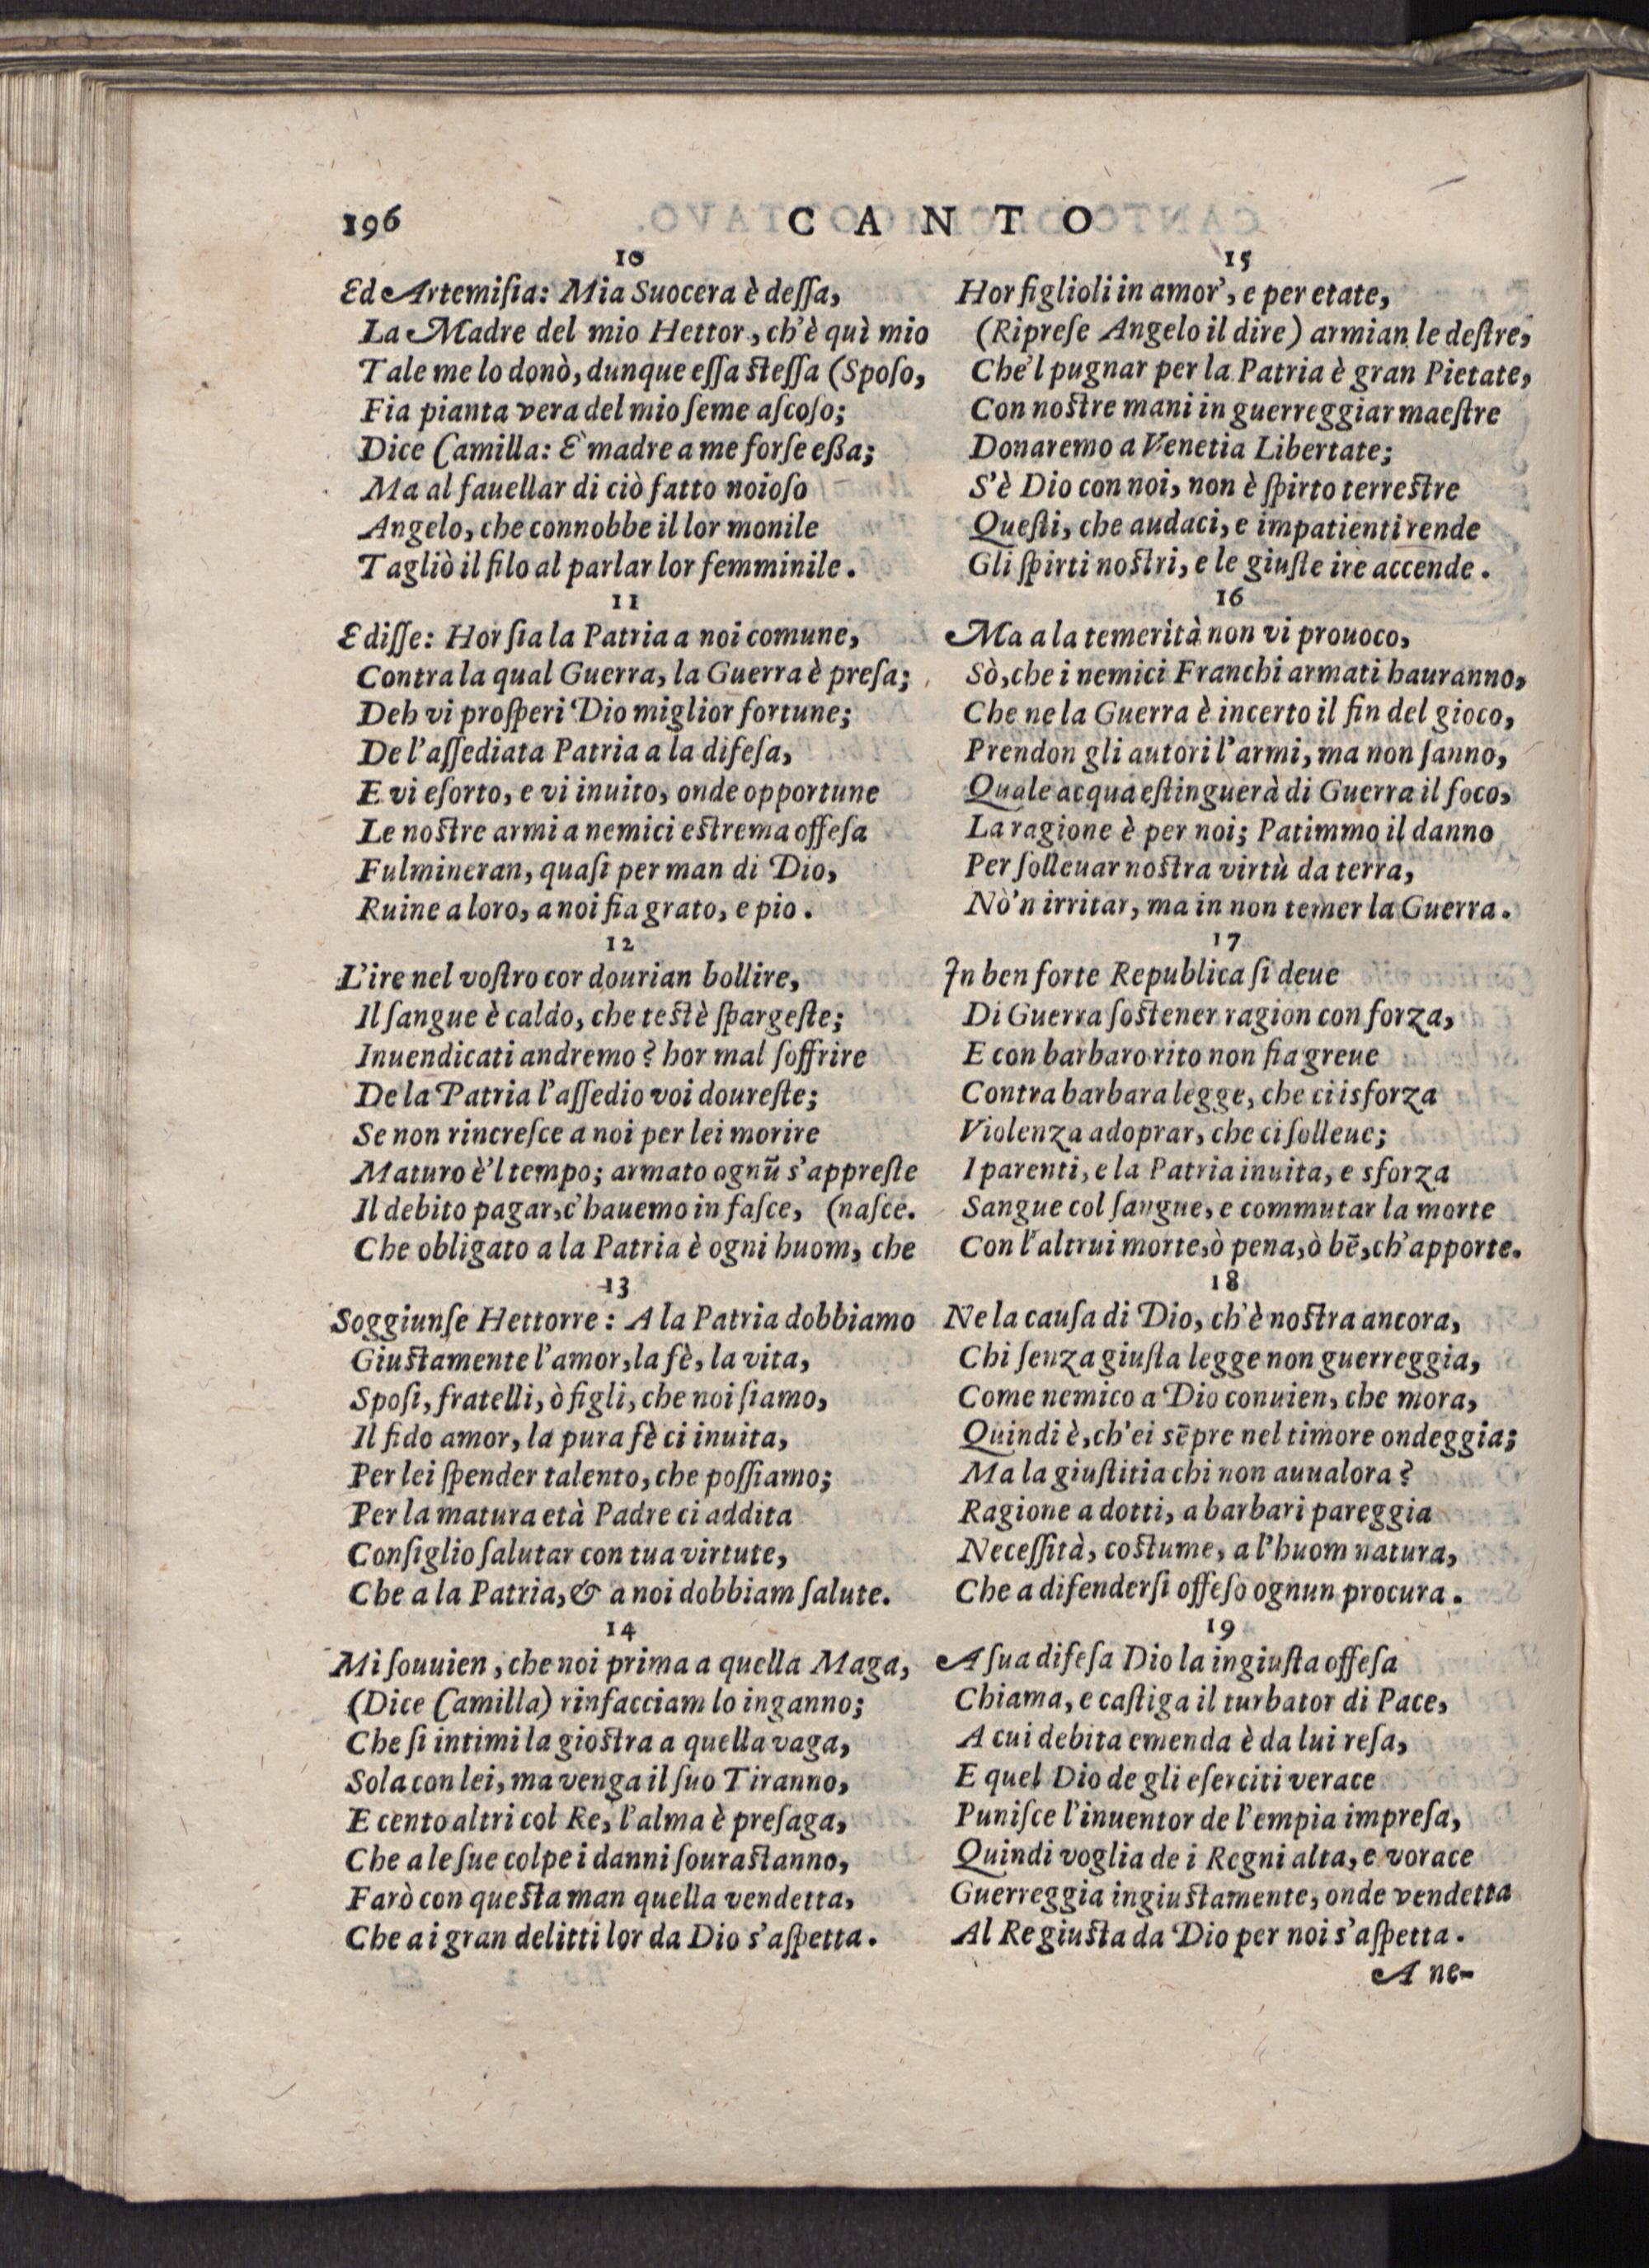 196
CANTO
10
Ed Artemiſia: Mia Suocera è deſſa,
La Madre del mio Hettor, ch'è quì mio
Tale me lo donò, dunque eſſa steſſa (Spoſo,
Fia pianta vera del mio ſeme aſcoſo;
Dice Camilla: E' madre a me forſe eßa;
Ma al fauellar di ciò fatto noioſo
Angelo, che connobbe il lor monile
Tagliò il filo al parlar lor femminile.
11
E diſſe: Hor ſia la Patria a noi comune,
Contra la qual Guerra, la Guerra è preſa;
Deh vi proſperi Dio miglior fortune;
De l'aſſediata Patria a la difeſa,
E vi eſorto, e vi inuito, onde opportune
Le nostre armi a nemici estrema offeſa
Fulmineran, quaſi per man di Dio,
Ruine a loro, a noi fia grato, e pio.
12
L'ire nel voſtro cor dourian bollire,
Il ſangue è caldo, che testè ſpargeſte;
Inuendicati andremo? hor mal ſoffrire
De la Patria l'aſſedio voi doureſte;
Se non rincreſce a noi per lei morire
Maturo è'l tempo; armato ognū s'appreſte
Il debito pagar, c'hauemo in faſce, (naſce.
Che obligato a la Patria è ogni huom, che
13
Soggiunſe Hettorre: A la Patria dobbiamo
Giustamente l'amor, la fè, la vita,
Spoſi, fratelli, ò figli, che noi ſiamo,
Il fido amor, la pura fè ci inuita,
Per lei ſpender talento, che poſſiamo;
Per la matura età Padre ci addita
Conſiglio ſalutar con tua virtute,
Che a la Patria, & a noi dobbiam ſalute.
14
Mi ſouuien, che noi prima a quella Maga,
(Dice Camilla) rinfacciam lo inganno;
Che ſi intimi la giostra a quella vaga,
Sola con lei, ma venga il ſuo Tiranno,
E cento altri col Re, l'alma è preſaga,
Che a le ſue colpe i danni ſourastanno,
Farò con questa man quella vendetta,
Che a i gran delitti lor da Dio s'aſpetta.
15
Hor figlioli in amor', e per etate,
(Ripreſe Angelo il dire) armian le deſtre,
Che'l pugnar per la Patria è gran Pietate,
Con nostre mani in guerreggiar maeſtre
Donaremo a Venetia Libertate;
S'è Dio con noi, non è ſpirto terrestre
Queſti, che audaci, e impatienti rende
Gli ſpirti nostri, e le giuſte ire accende.
16
Ma a la temerità non vi prouoco,
Sò, che i nemici Franchi armati hauranno,
Che ne la Guerra è incerto il fin del gioco,
Prendon gli autori l'armi, ma non ſanno,
Quale acqua eſtinguerà di Guerra il foco,
La ragione è per noi; Patimmo il danno
Per ſolleuar nostra virtù da terra,
Nò'n irritar, ma in non temer la Guerra.
17
In ben forte Republica ſi deue
Di Guerra ſostener ragion con forza,
E con barbaro rito non fia greue
Contra barbara legge, che ci isforza
Violenza adoprar, che ci ſolleue;
I parenti, e la Patria inuita, e sforza
Sangue col ſangue, e commutar la morte
Con l'altrui morte, ò pena, ò bē, ch'apporte.
18
Ne la cauſa di Dio, ch'è nostra ancora,
Chi ſenza giuſta legge non guerreggia,
Come nemico a Dio conuien, che mora,
Quindi è, ch'ei sēpre nel timore ondeggia;
Ma la giuſtitia chi non auualora?
Ragione a dotti, a barbari pareggia
Neceſſità, costume, a l'huom natura,
Che a difenderſi offeſo ognun procura.
19
A ſua difeſa Dio la ingiuſta offeſa
Chiama, e caſtiga il turbator di Pace,
A cui debita emenda è da lui reſa,
E quel Dio de gli eſerciti verace
Puniſce l'inuentor de l'empia impreſa,
Quindi voglia de i Regni alta, e vorace
Guerreggia ingiustamente, onde vendetta
Al Re giusta da Dio per noi s'aſpetta.
A ne-